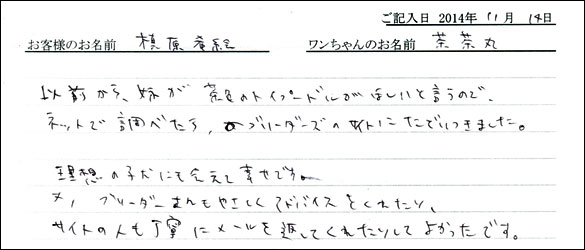 ご記入日 2014年 11月 14日
お客様のお名前 槙原希絵 ワンちゃんのお名前 茶茶丸
以前から、妹が茶色のトイプードルがほしいと言うので、
ネットで調べたら、ブリーダーズのサイトにたどりつきました。
理想の子犬にも会えて幸せです。
又、ブリーダーさんもやさしくアドバイスをくれたり、
サイトの人も丁寧にメールを返してくれたりしてよかったです。